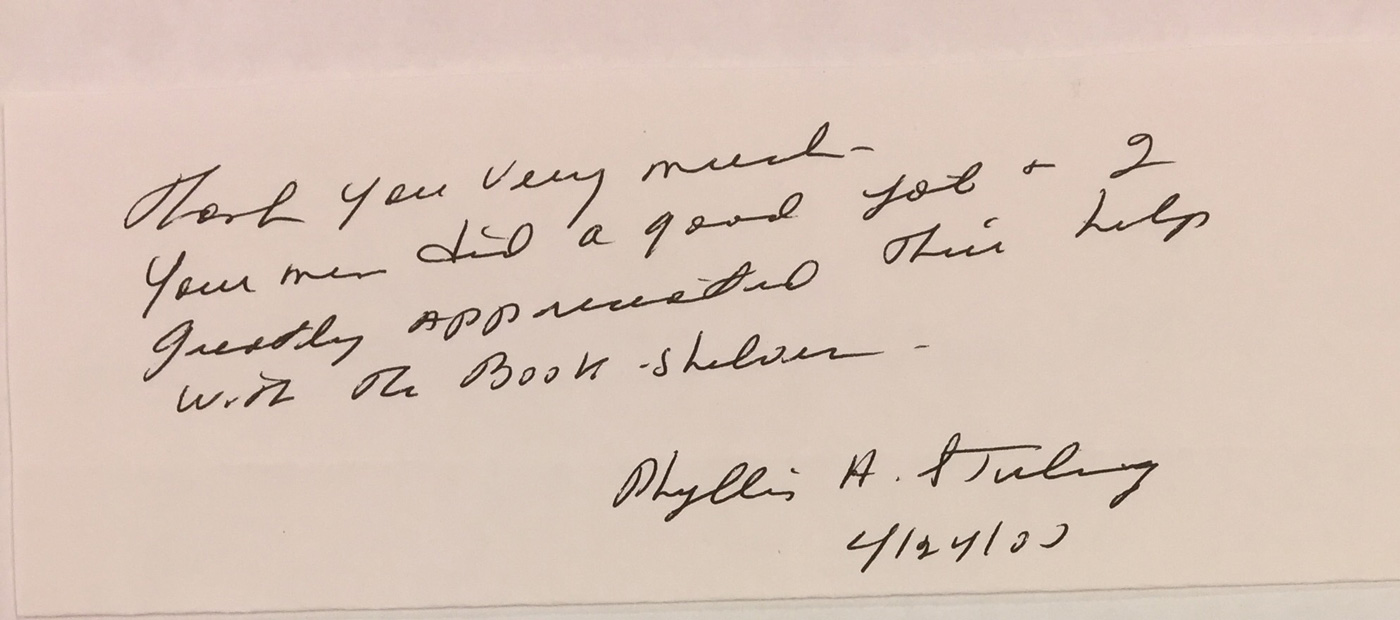 Thank you very much-
Your men did a good job + I
greatly appreciated their help
with the Book-shelves -
Phyllis A.
4/24/00